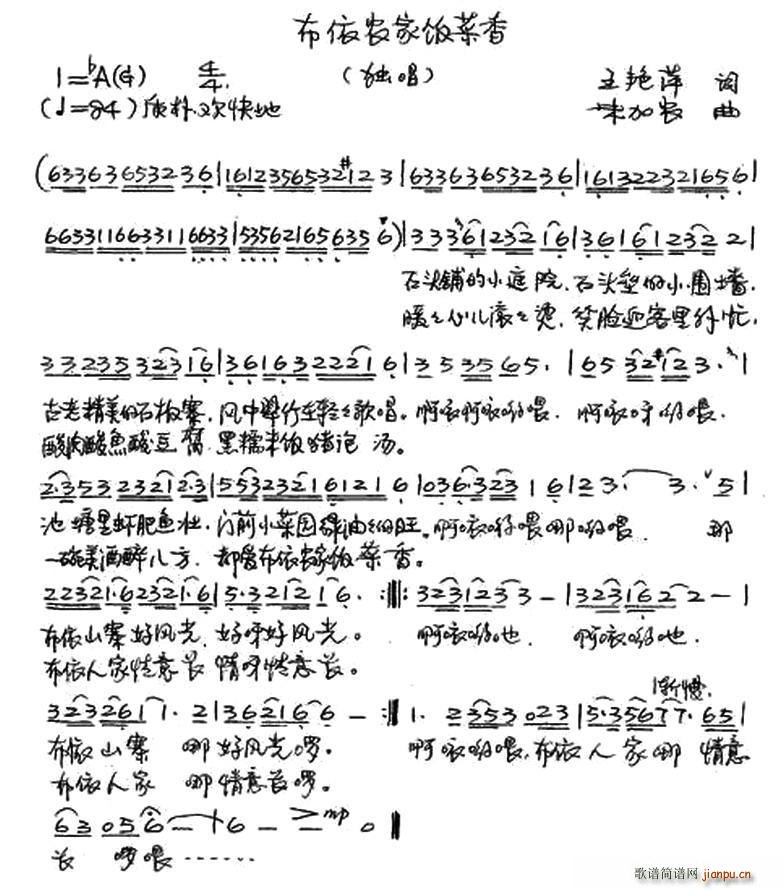 布依农家饭菜香
1=♭A(G) 4/4 （独唱） 王艳萍 词
(♩=84) 质朴欢快地 加农 曲
(6336365323 6|161235653212 3|6336365323 6|1613223216 5 6|
66331166331 1 6633|535621656356)|3 3 3 61232 16|3 6 1 61232 2|
石头铺的小庭院，石头垒的小围墙，
暖暖心儿滚滚烫，笑脸迎客里外忙，
3323532316|3616322216|3 5 3565.|6532123.|
古老精美的石板寨，风中翠竹在轻轻歌唱。啊哝啊哝哟喂，啊哝呀哟喂，
酸肉酸鱼酸豆腐 黑糯米饭猪泡 汤。
2.35323212.3|55323216121 6|036.3231 6|23. 3. 5|
池塘里虾肥鱼壮，门前小菜园绿油油的旺。啊哝哟喂哪哟喂 那
一碗美酒醉八方，都是布依农家饭菜香。
22321.62321.6|5.321216.:||:3231233-|3231622-|
布依山寨好风光，好呀好风光。 啊哝哟也， 啊哝哟也，
布依人家情意长 情呀情意长。
渐慢
3232611.2|3621666-:||1. 2353023|5.35677.65|
布依山寨 哪好风光啰。 啊哝哟喂，布依人家哪 情意
布依人家 哪情意长啰。
63056-|6->-mp0||
长 啰喂……
歌谱简谱网
jianpu.cn